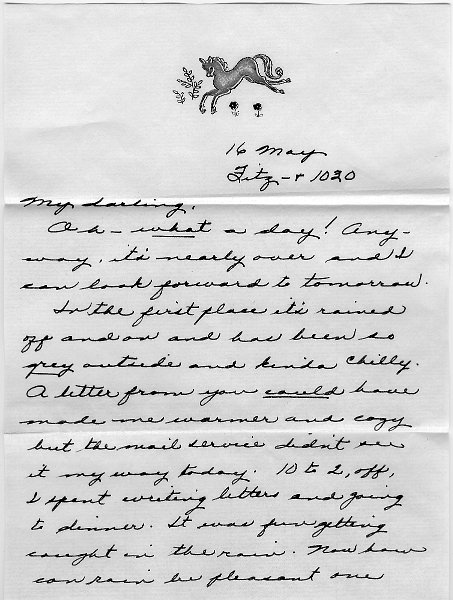 16 May
Fitz - & 1020
My darling,
Oh - what a day! Any-
way, it's nearly over and I
can look forward to tomorrow.
In the first place it's rained
off and on and has been so
grey outside and kinda chilly.
A letter from you could have
made me warmer and cozy
but the mail service didn't see
it my way today. 10 to 2, off,
I spent writing letters and going
to dinner. It was fun getting
caught in the rain. Now how
can rain be pleasant one